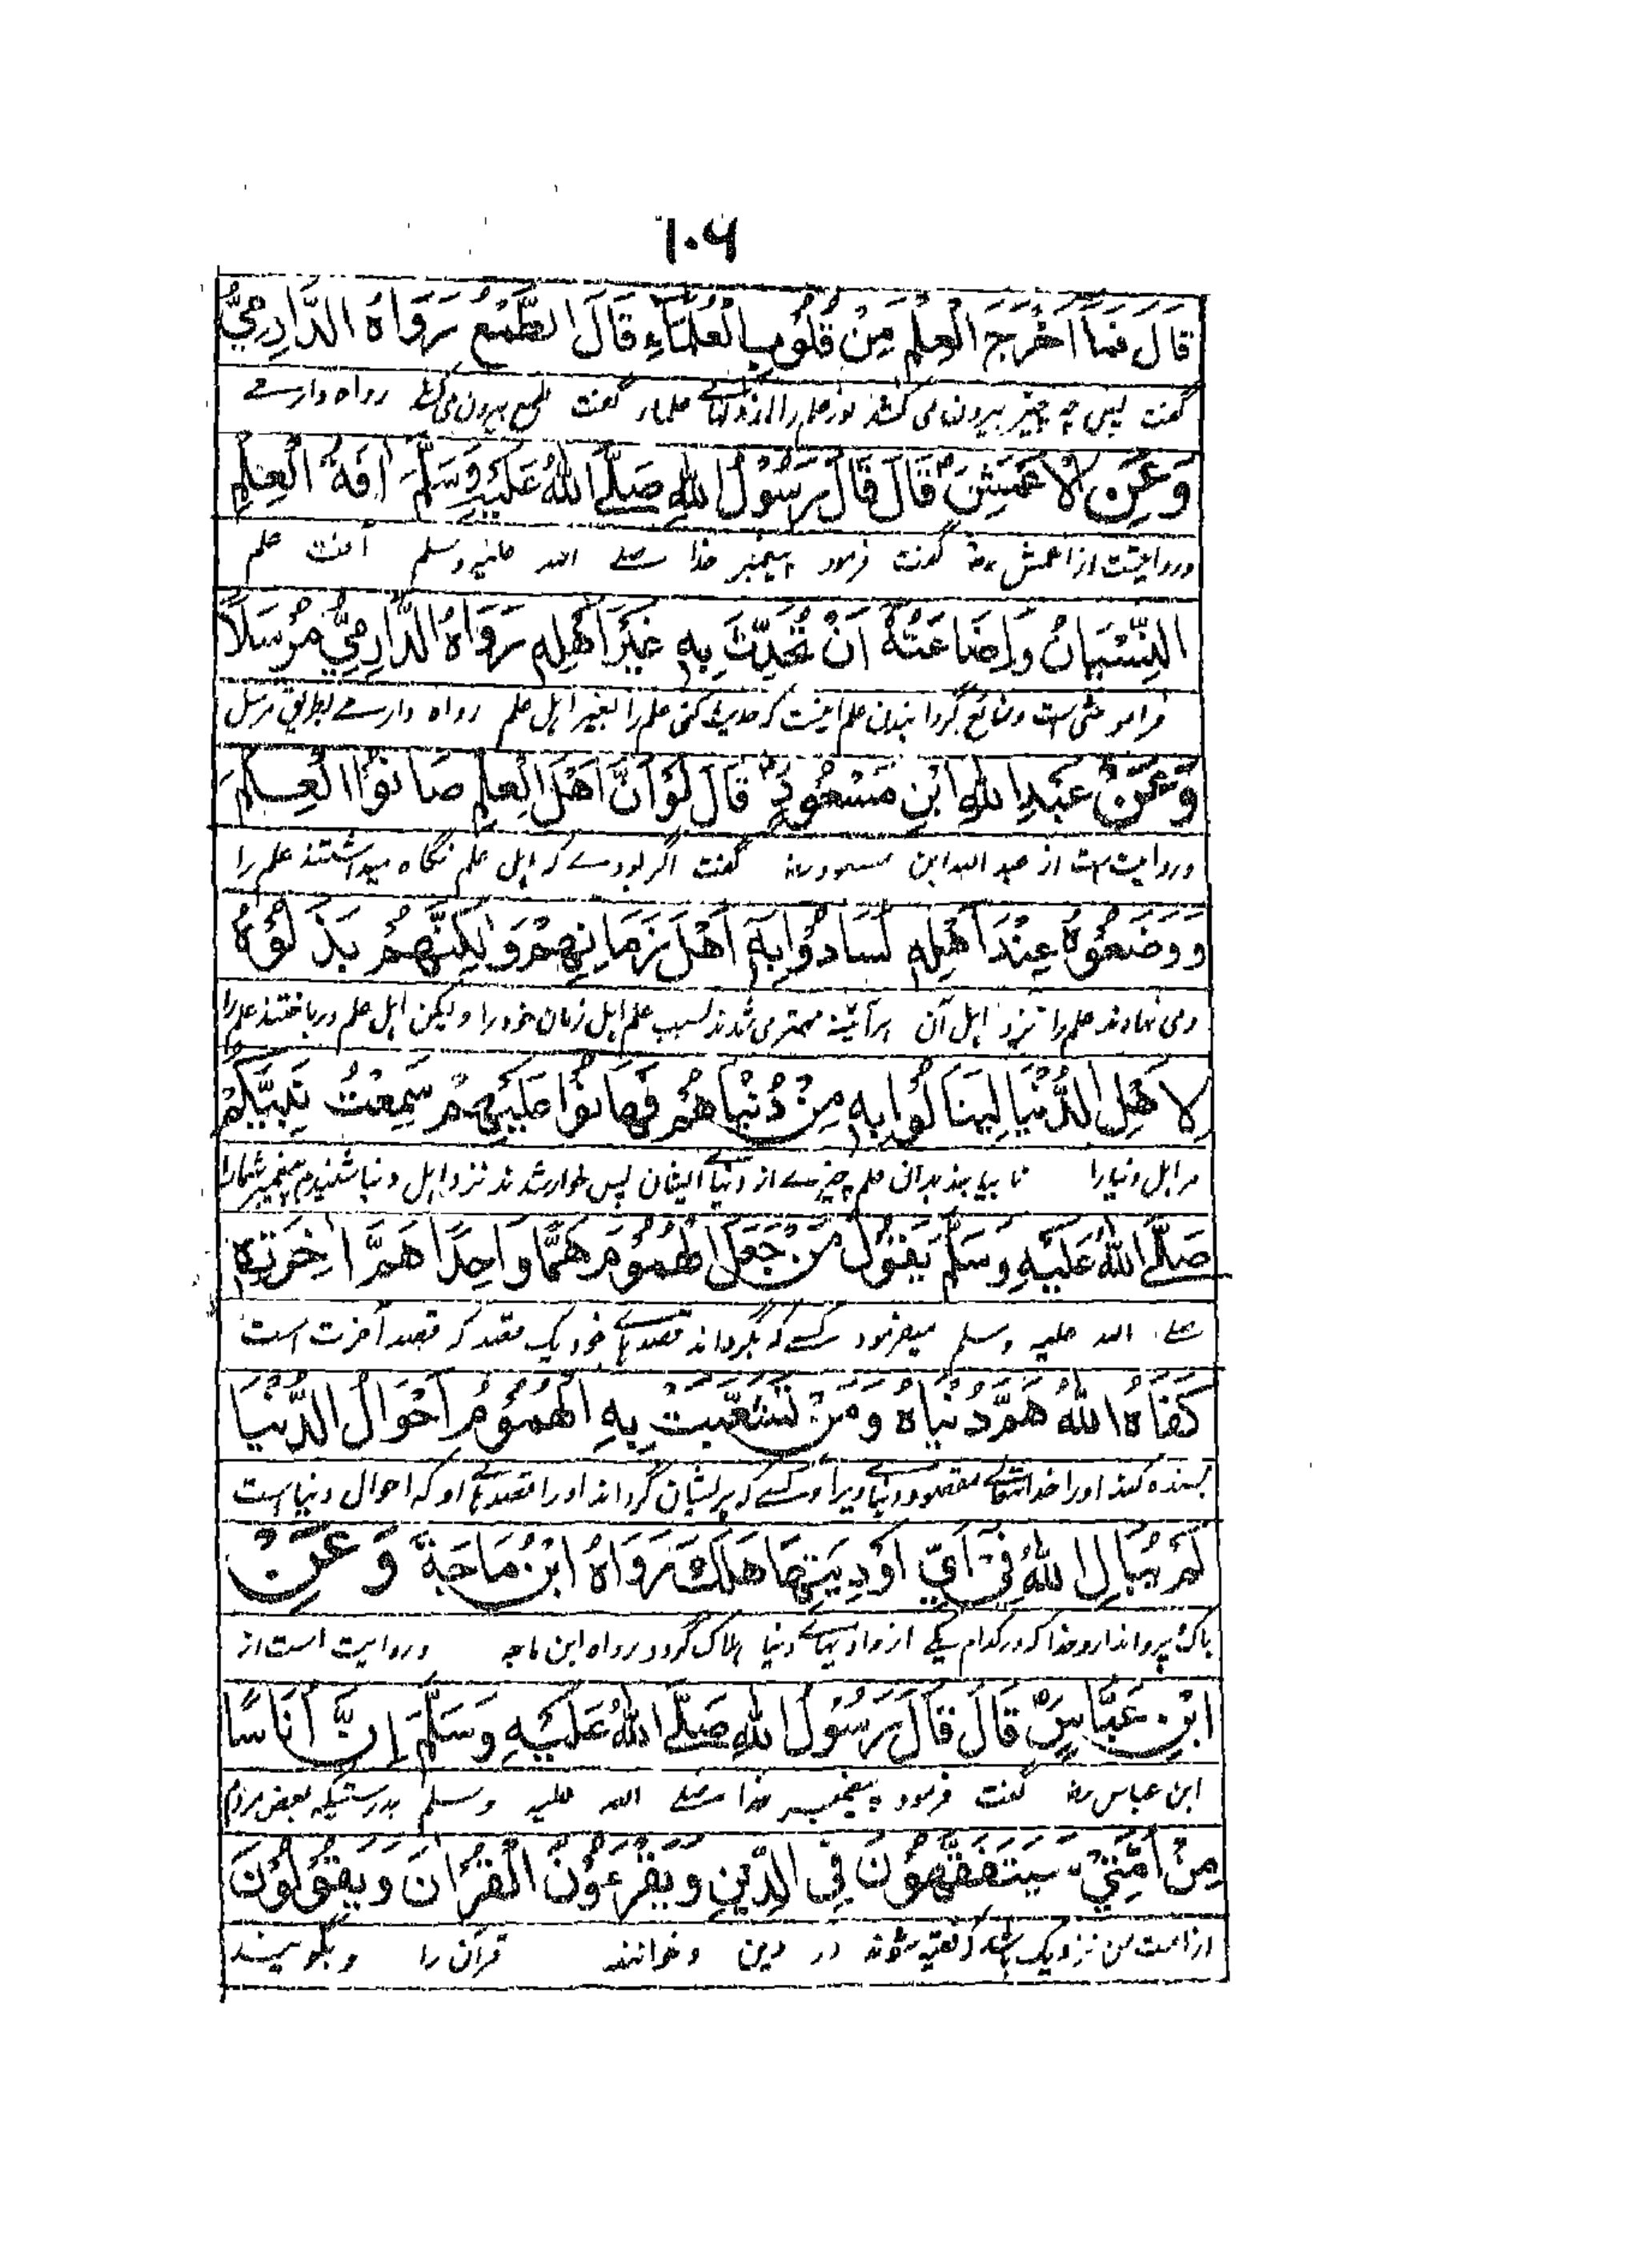 ۱۰۶
قَالَ فَمَا اَخْرَجَ الْعِلْمَ مِنْ قُلُوْبِ الْعُلَمَاءِ قَالَ الطَّمَعُ رَوَاهُ الدَّارِمِيُّ
گفت پس چه چیز بیرون می کشد نور علم را از دلهائے علماء گفت طمع بیرون می کشد رواه دارمے
وَعَنِ الْاَعْمَشِ رض قَالَ قَالَ رَسُوْلُ اللهِ صَلَّى اللهُ عَلَيْهِ وَسَلَّمَ اٰفَةُ الْعِلْمِ
وروایتست از اعمش رض گفت فرمود پیغمبر خدا صلے الله علیه وسلم آفت علم
النِّسْيَانُ وَاِضَاعَتُهُ اَنْ تُحَدِّثَ بِهِ غَيْرَ اَهْلِهِ رَوَاهُ الدَّارِمِيُّ مُرْسَلًا
فراموشی است وضائع گردانیدن علم اینست که حدیث کنی علم را بغیر اہل علم رواه دارمے بطریق مرسل
وَعَنْ عَبْدِ اللهِ ابْنِ مَسْعُوْدٍ رض قَالَ لَوْ اَنَّ اَهْلَ الْعِلْمِ صَانُوْا الْعِلْمَ
وروایت است از عبد الله ابن مسعود رض گفت اگر بودے که اہل علم نگاه میداشتند علم را
وَوَضَعُوْهُ عِنْدَ اَهْلِهِ لَسَادُوْا بِهِ اَهْلَ زَمَانِهِمْ وَلٰكِنَّهُمْ بَذَلُوْهُ
ومی نهادند علم را نزد اہل آن ہرآئینه مهتر می شدند بسبب علم اہل زمان خود را ولیکن اہل علم درباختند علم را
لِاَهْلِ الدُّنْيَا لِيَنَالُوْا بِهِ مِنْ دُنْيَاهُمْ فَهَانُوْا عَلَيْهِمْ سَمِعْتُ نَبِيَّكُمْ
مر اہل دنیا را تا بیابند بدان علم چیزے از دنیائے ایشان پس خوار شدند نزد اہل دنیا شنیدم پیغمبر شما را
صَلَّى اللهُ عَلَيْهِ وَسَلَّمَ يَقُوْلُ مَنْ جَعَلَ الْهُمُوْمَ هَمًّا وَاحِدًا هَمَّ اٰخِرَتِهِ
صلے الله علیه وسلم میفرمود کسے که بگرداند قصدہائے خود یک قصد که قصد آخرت است
كَفَاهُ اللهُ هَمَّ دُنْيَاهُ وَمَنْ تَشَعَّبَتْ بِهِ الْهُمُوْمُ اَحْوَالُ الدُّنْيَا
بسنده کند او را خدا مقصود دنیاوی را وکسے که پریشان گرداند او را قصدہائے او که احوال دنیا است
لَمْ يُبَالِ اللهُ فِيْ اَيِّ اَوْدِيَتِهَا هَلَكَ رَوَاهُ ابْنُ مَاجَةَ وَعَنْ
باک پروا ندارد خدا که در کدام یکے از وادیہائے دنیا ہلاک گردد رواه ابن ماجه وروایت است از
ابْنِ عَبَّاسٍ رض قَالَ قَالَ رَسُوْلُ اللهِ صَلَّى اللهُ عَلَيْهِ وَسَلَّمَ اِنَّ اُنَاسًا
ابن عباس رض گفت فرمود پیغمبر خدا صلے الله علیه وسلم بدرستیکه بعض مردم
مِنْ اُمَّتِيْ سَيَتَفَقَّهُوْنَ فِي الدِّيْنِ وَيَقْرَءُوْنَ الْقُرْاٰنَ وَيَقُوْلُوْنَ
از امت من نزدیک باشد که فقیه شوند در دین وخوانند قرآن را وبگویند